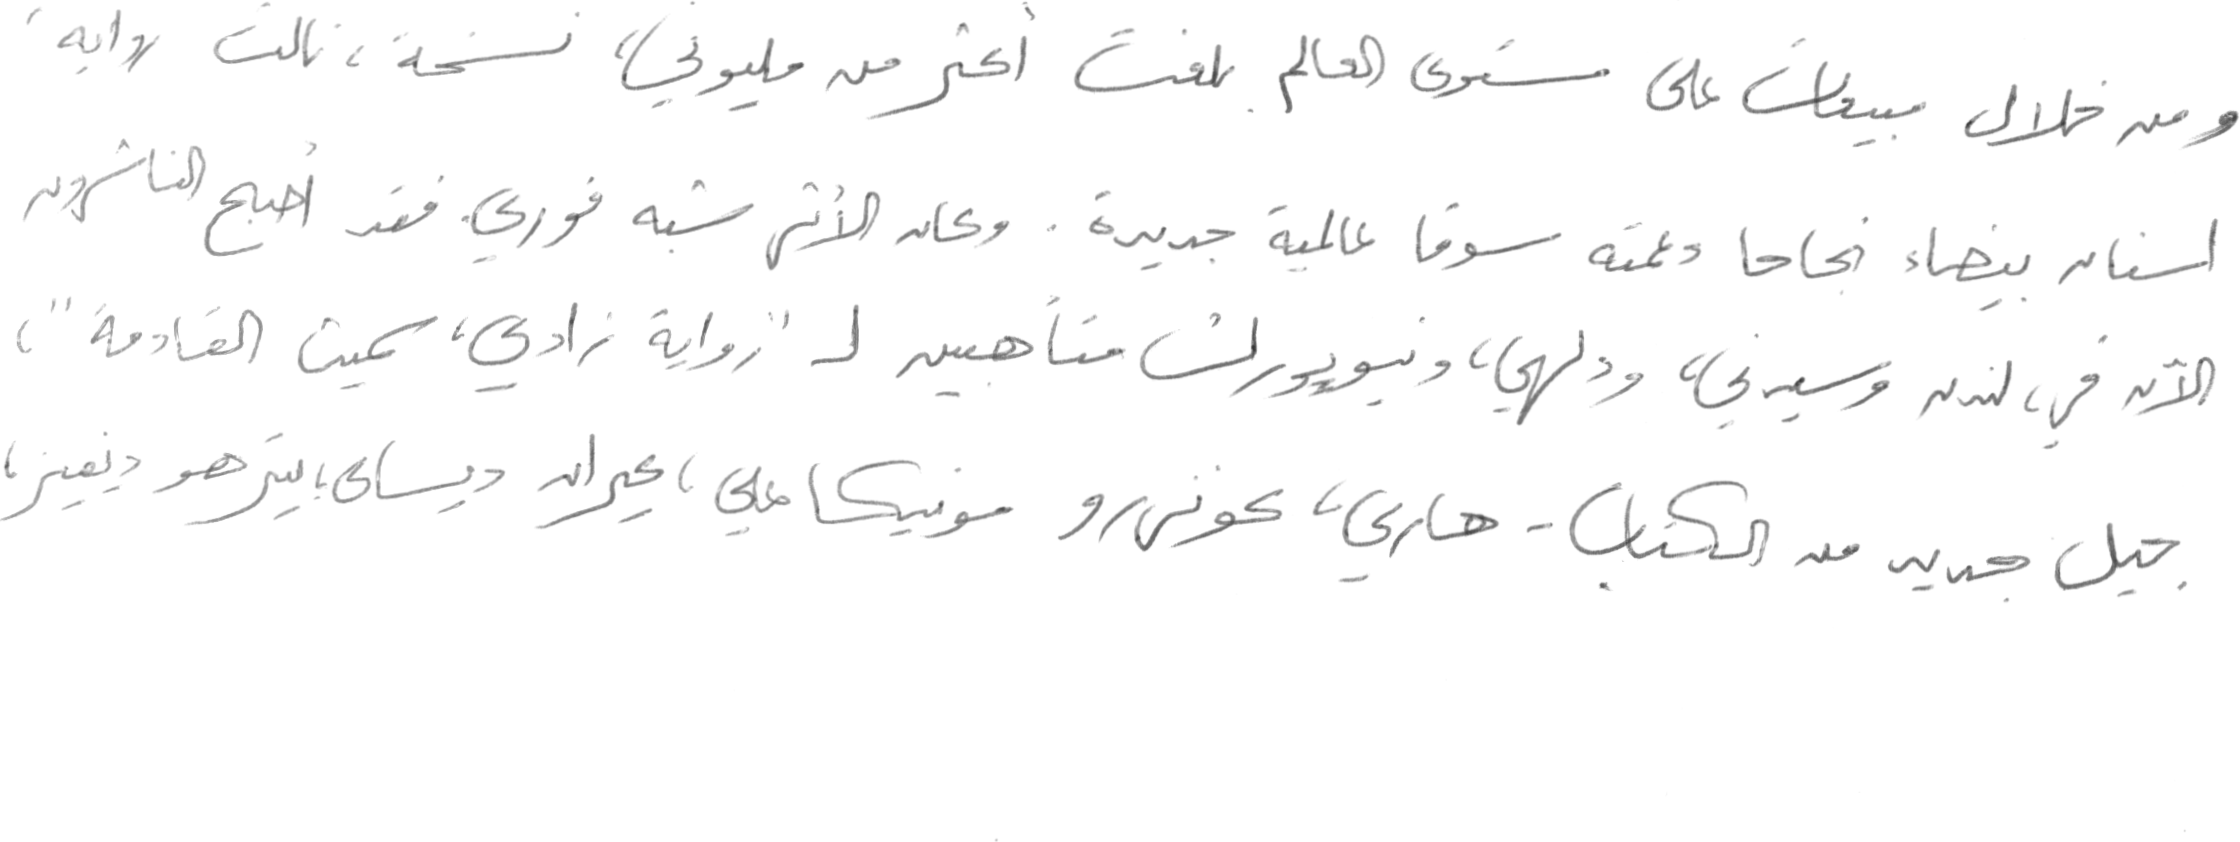 ومن خلال مبيعات على مستوى العالم بلغت أكثر من مليوني نسخة، نالت رواية
اسنان بيضاء نجاحا دعمته سوقا عالمية جديدة. وكان الأثر شبه فوري. فقد أصبح الناشرون
الآن في لندن وسيدني، ودلهي، ونيويورك متأهبين لـ "رواية زادي سميث القادمة"،
جيل جديد من الكتاب - هاري، كونزرو مونيكا علي، كيران ديساي، ليتزهو دينفينز،